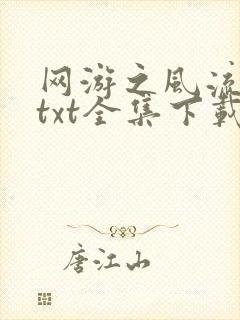 网游之风流
txt全集下载
唐江山